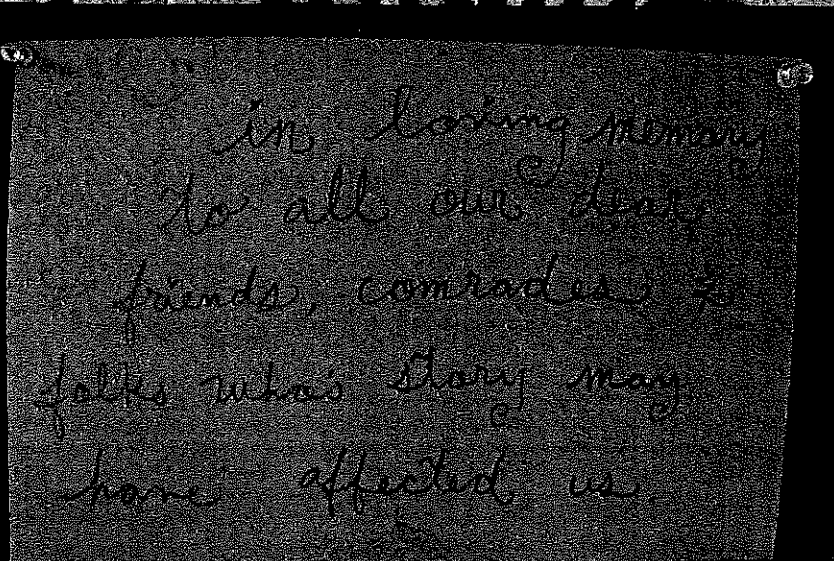 in loving memory
to all our dear
friends, comrades &
folks who's story may
have affected us.